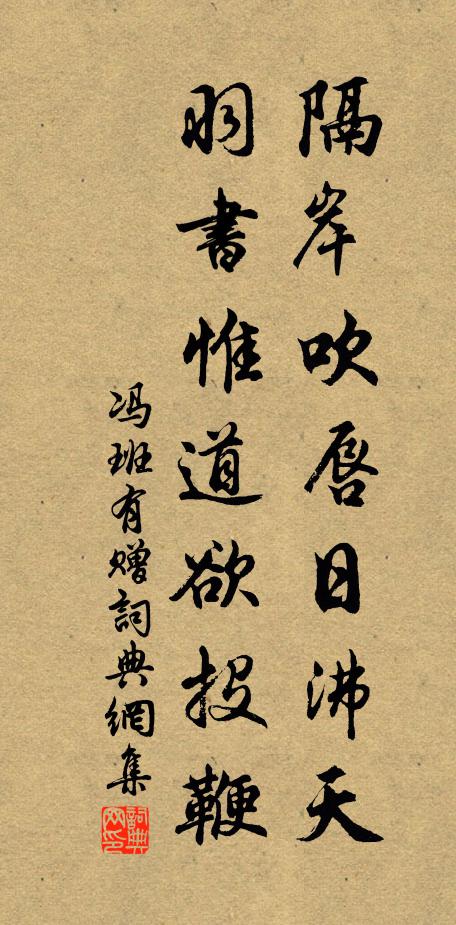 隔岸吹唇日沸天
羽書惟道欲投鞭
冯班有赠詞典網集
詞典网印